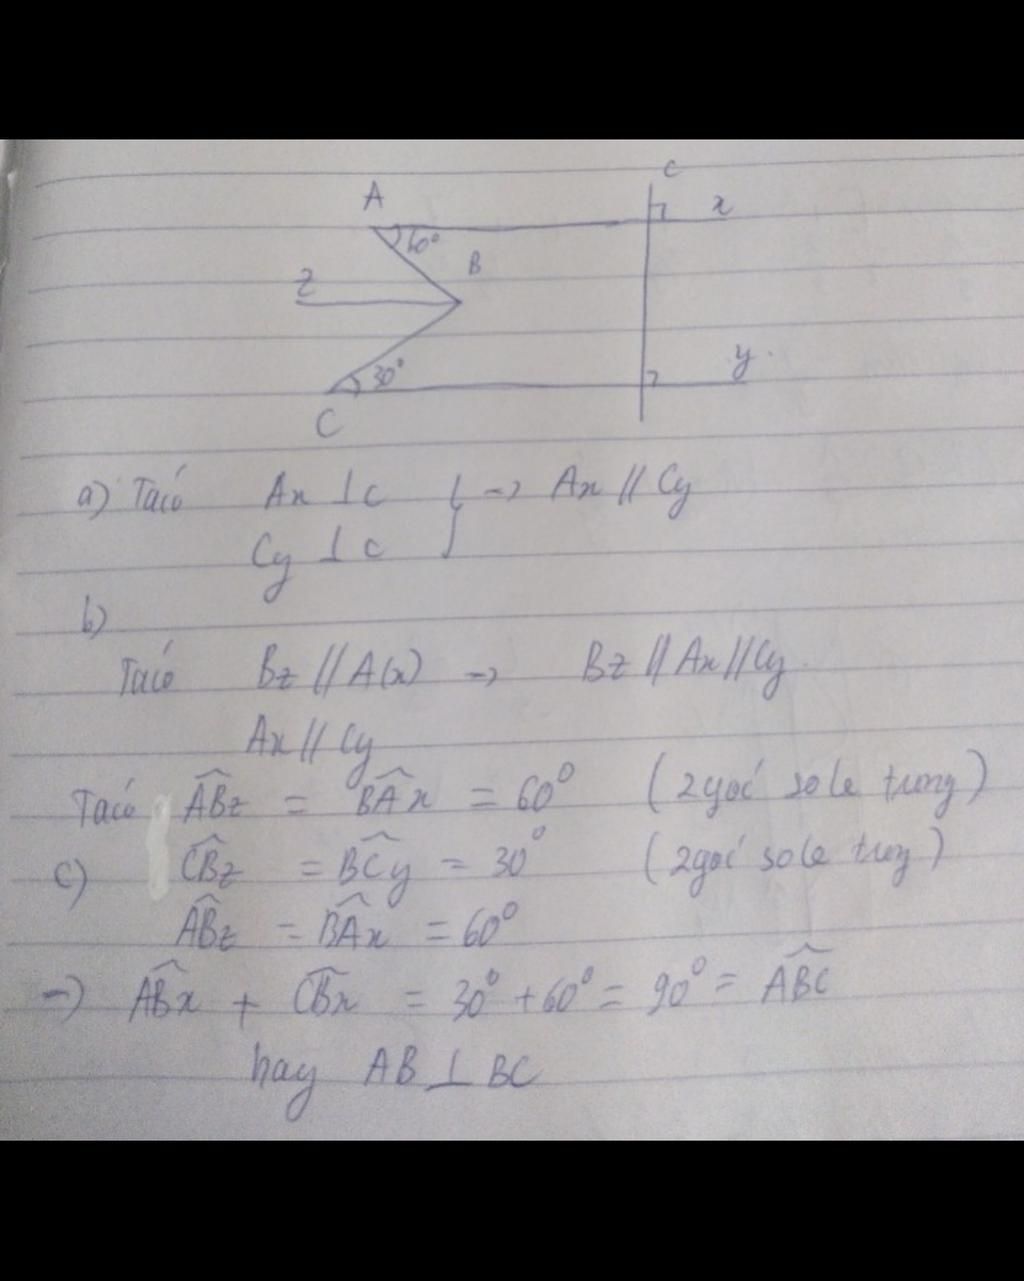 A
c
x
60°
B
z
y
30°
C
a) Ta có Ax ⊥ c } → Ax // Cy
Cy ⊥ c
b)
Ta có Bz // A(x) → Bz // Ax // Cy
Ax // Cy
Ta có \widehat{ABz} = \widehat{BAx} = 60° (2 góc so le trong)
c) \widehat{CBz} = \widehat{BCy} = 30° (2 góc so le trong)
\widehat{ABz} = \widehat{BAx} = 60°
→) \widehat{ABx} + \widehat{CBx} = 30° + 60° = 90° = \widehat{ABC}
hay AB ⊥ BC